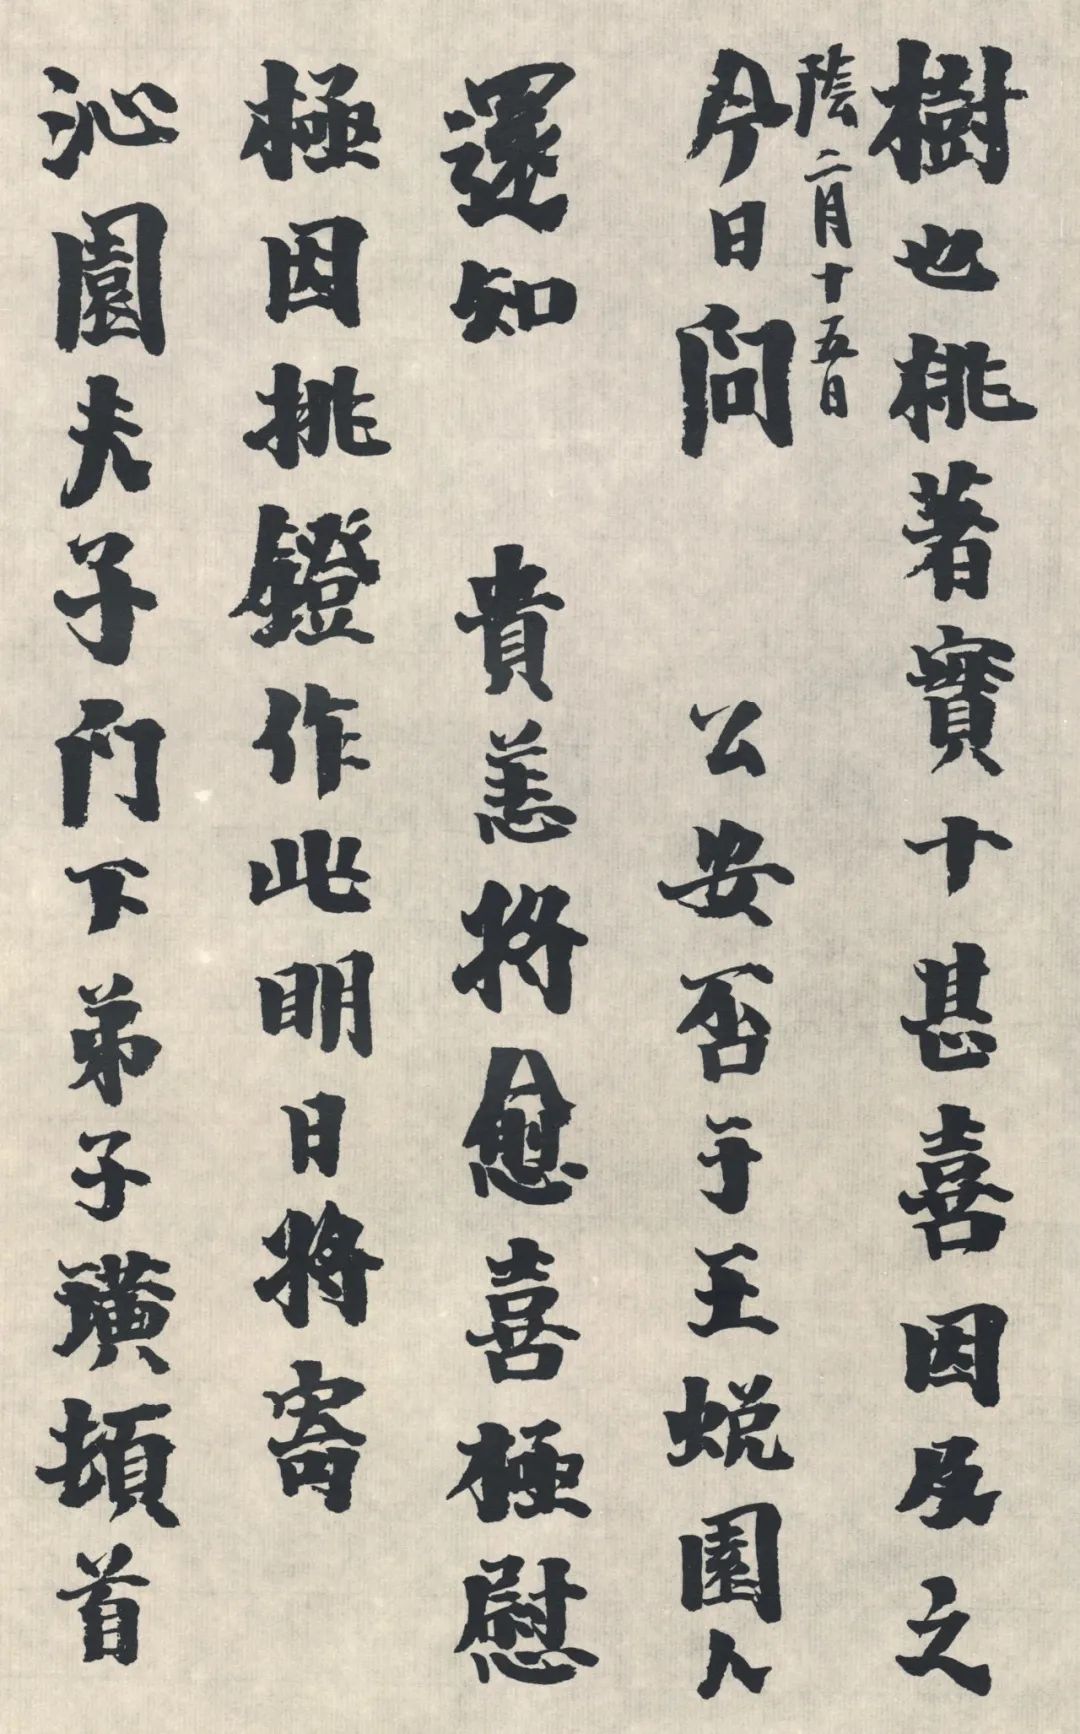 樹也桃著實十甚喜因及之
陰二月十五日
今日問 公安否于王蜕園人
還知 貴恙將愈喜極慰
極因挑鐙作此明日將寄
沁園夫子門下弟子璜頓首